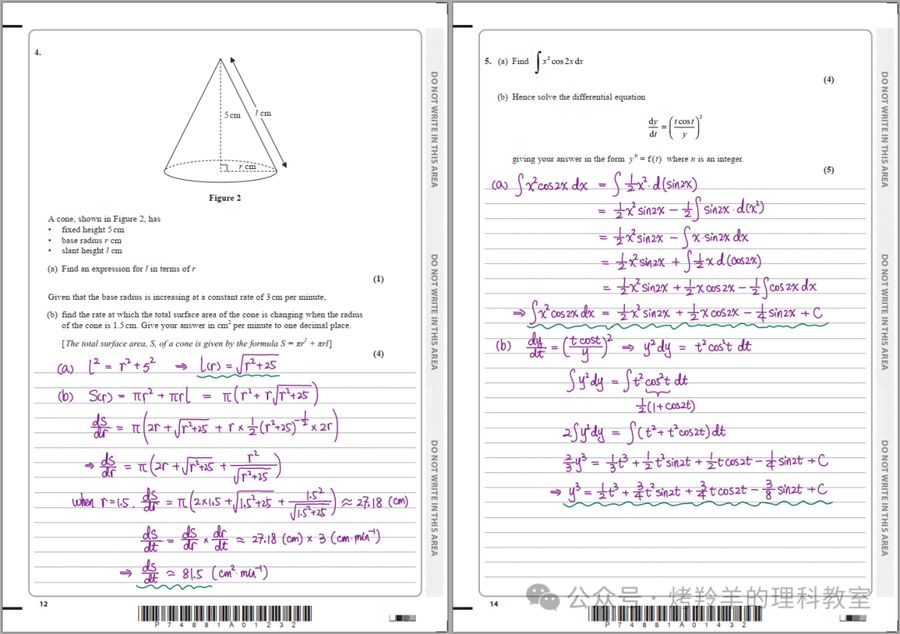 4.
5 cm
l cm
r cm
Figure 2
A cone, shown in Figure 2, has
• fixed height 5 cm
• base radius r cm
• slant height l cm
(a) Find an expression for l in terms of r
(1)
Given that the base radius is increasing at a constant rate of 3 cm per minute,
(b) find the rate at which the total surface area of the cone is changing when the radius
of the cone is 1.5 cm. Give your answer in cm² per minute to one decimal place.
[The total surface area, S, of a cone is given by the formula S = πr² + πrl]
(4)
(a) l² = r² + 5² ⇒ l(r) = √(r²+25)
(b) S(r) = πr² + πrl = π(r² + r√(r²+25))
dS/dr = π(2r + √(r²+25) + r × 1/2(r²+25)^(-1/2) × 2r)
⇒ dS/dr = π(2r + √(r²+25) + r²/√(r²+25))
when r=1.5, dS/dr = π(2×1.5 + √(1.5²+25) + 1.5²/√(1.5²+25)) ≈ 27.18 (cm)
dS/dt = dS/dr × dr/dt ≈ 27.18 (cm) × 3 (cm·min⁻¹)
⇒ dS/dt ≈ 81.5 (cm²·min⁻¹)
DO NOT WRITE IN THIS AREA
DO NOT WRITE IN THIS AREA
DO NOT WRITE IN THIS AREA
12
P 7 4 8 8 1 A 0 1 2 3 2
5. (a) Find ∫x² cos 2x dx
(4)
(b) Hence solve the differential equation
dy/dt = (t cos t / y)²
giving your answer in the form yⁿ = f(t) where n is an integer.
(5)
(a) ∫x²cos2x dx = ∫1/2 x²·d(sin2x)
= 1/2 x² sin2x − 1/2∫sin2x·d(x²)
= 1/2 x² sin2x − ∫x·sin2x dx
= 1/2 x² sin2x + ∫1/2 x d(cos2x)
= 1/2 x² sin2x + 1/2 x cos2x − 1/2∫cos2x dx
⇒ ∫x²cos2x dx = 1/2 x² sin2x + 1/2 x cos2x − 1/4 sin2x + C
(b) dy/dt = (t cost / y)² ⇒ y²dy = t²cos²t dt
∫y²dy = ∫t²cos²t dt
1/2(1+cos2t)
2∫y²dy = ∫(t² + t²cos2t)dt
2/3 y³ = 1/3 t³ + 1/2 t² sin2t + 1/2 t cos2t − 1/4 sin2t + C
⇒ y³ = 1/2 t³ + 3/4 t² sin2t + 3/4 t cos2t − 3/8 sin2t + C
DO NOT WRITE IN THIS AREA
DO NOT WRITE IN THIS AREA
DO NOT WRITE IN THIS AREA
公众号 · 烤羚羊的理科教室
14
P 7 4 8 8 1 A 0 1 4 3 2